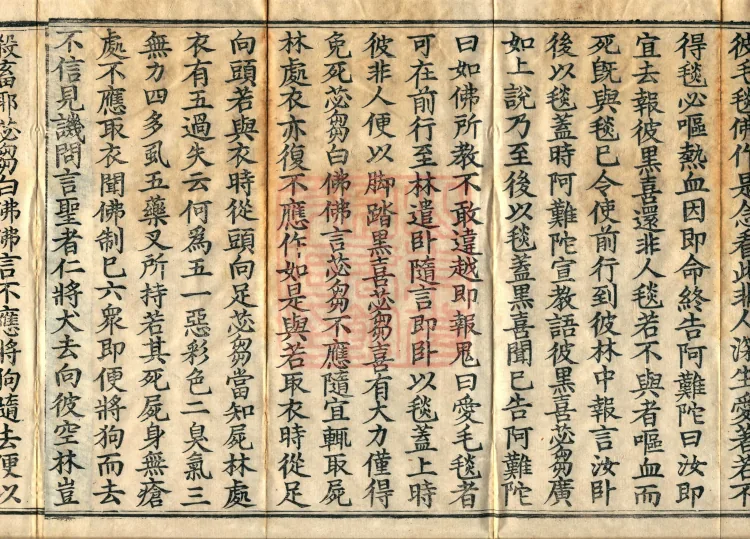 彼毛毯佛作是念看此非人深生愛著若不
得毯必嘔熱血因即命終告阿難陀曰汝即
宜去報彼黑喜還非人毯若不與者嘔血而
死旣與毯已令使前行到彼林中報言汝卧
後以毯蓋時阿難陀宣教語彼黑喜苾芻廣
如上說乃至後以毯蓋黑喜聞已告阿難陀
曰如佛所教不敢違越即報鬼曰愛毛毯者
可在前行至林遣卧隨言即卧以毯蓋上時
彼非人便以脚踏黑喜苾芻喜有大力僅得
免死苾芻白佛佛言苾芻不應隨宜輒取屍
林處衣亦復不應作如是與若取衣時從足
向頭若與衣時從頭向足苾芻當知屍林處
衣有五過失云何爲五一惡彩色二臭氣三
無力四多虱五藥叉所持若其死屍身無瘡
處不應取衣聞佛制已六衆即便將狗而去
不信見譏問言聖者仁將犬去向彼空林豈
殺畜耶苾芻白佛佛言不應將狗隨去便以